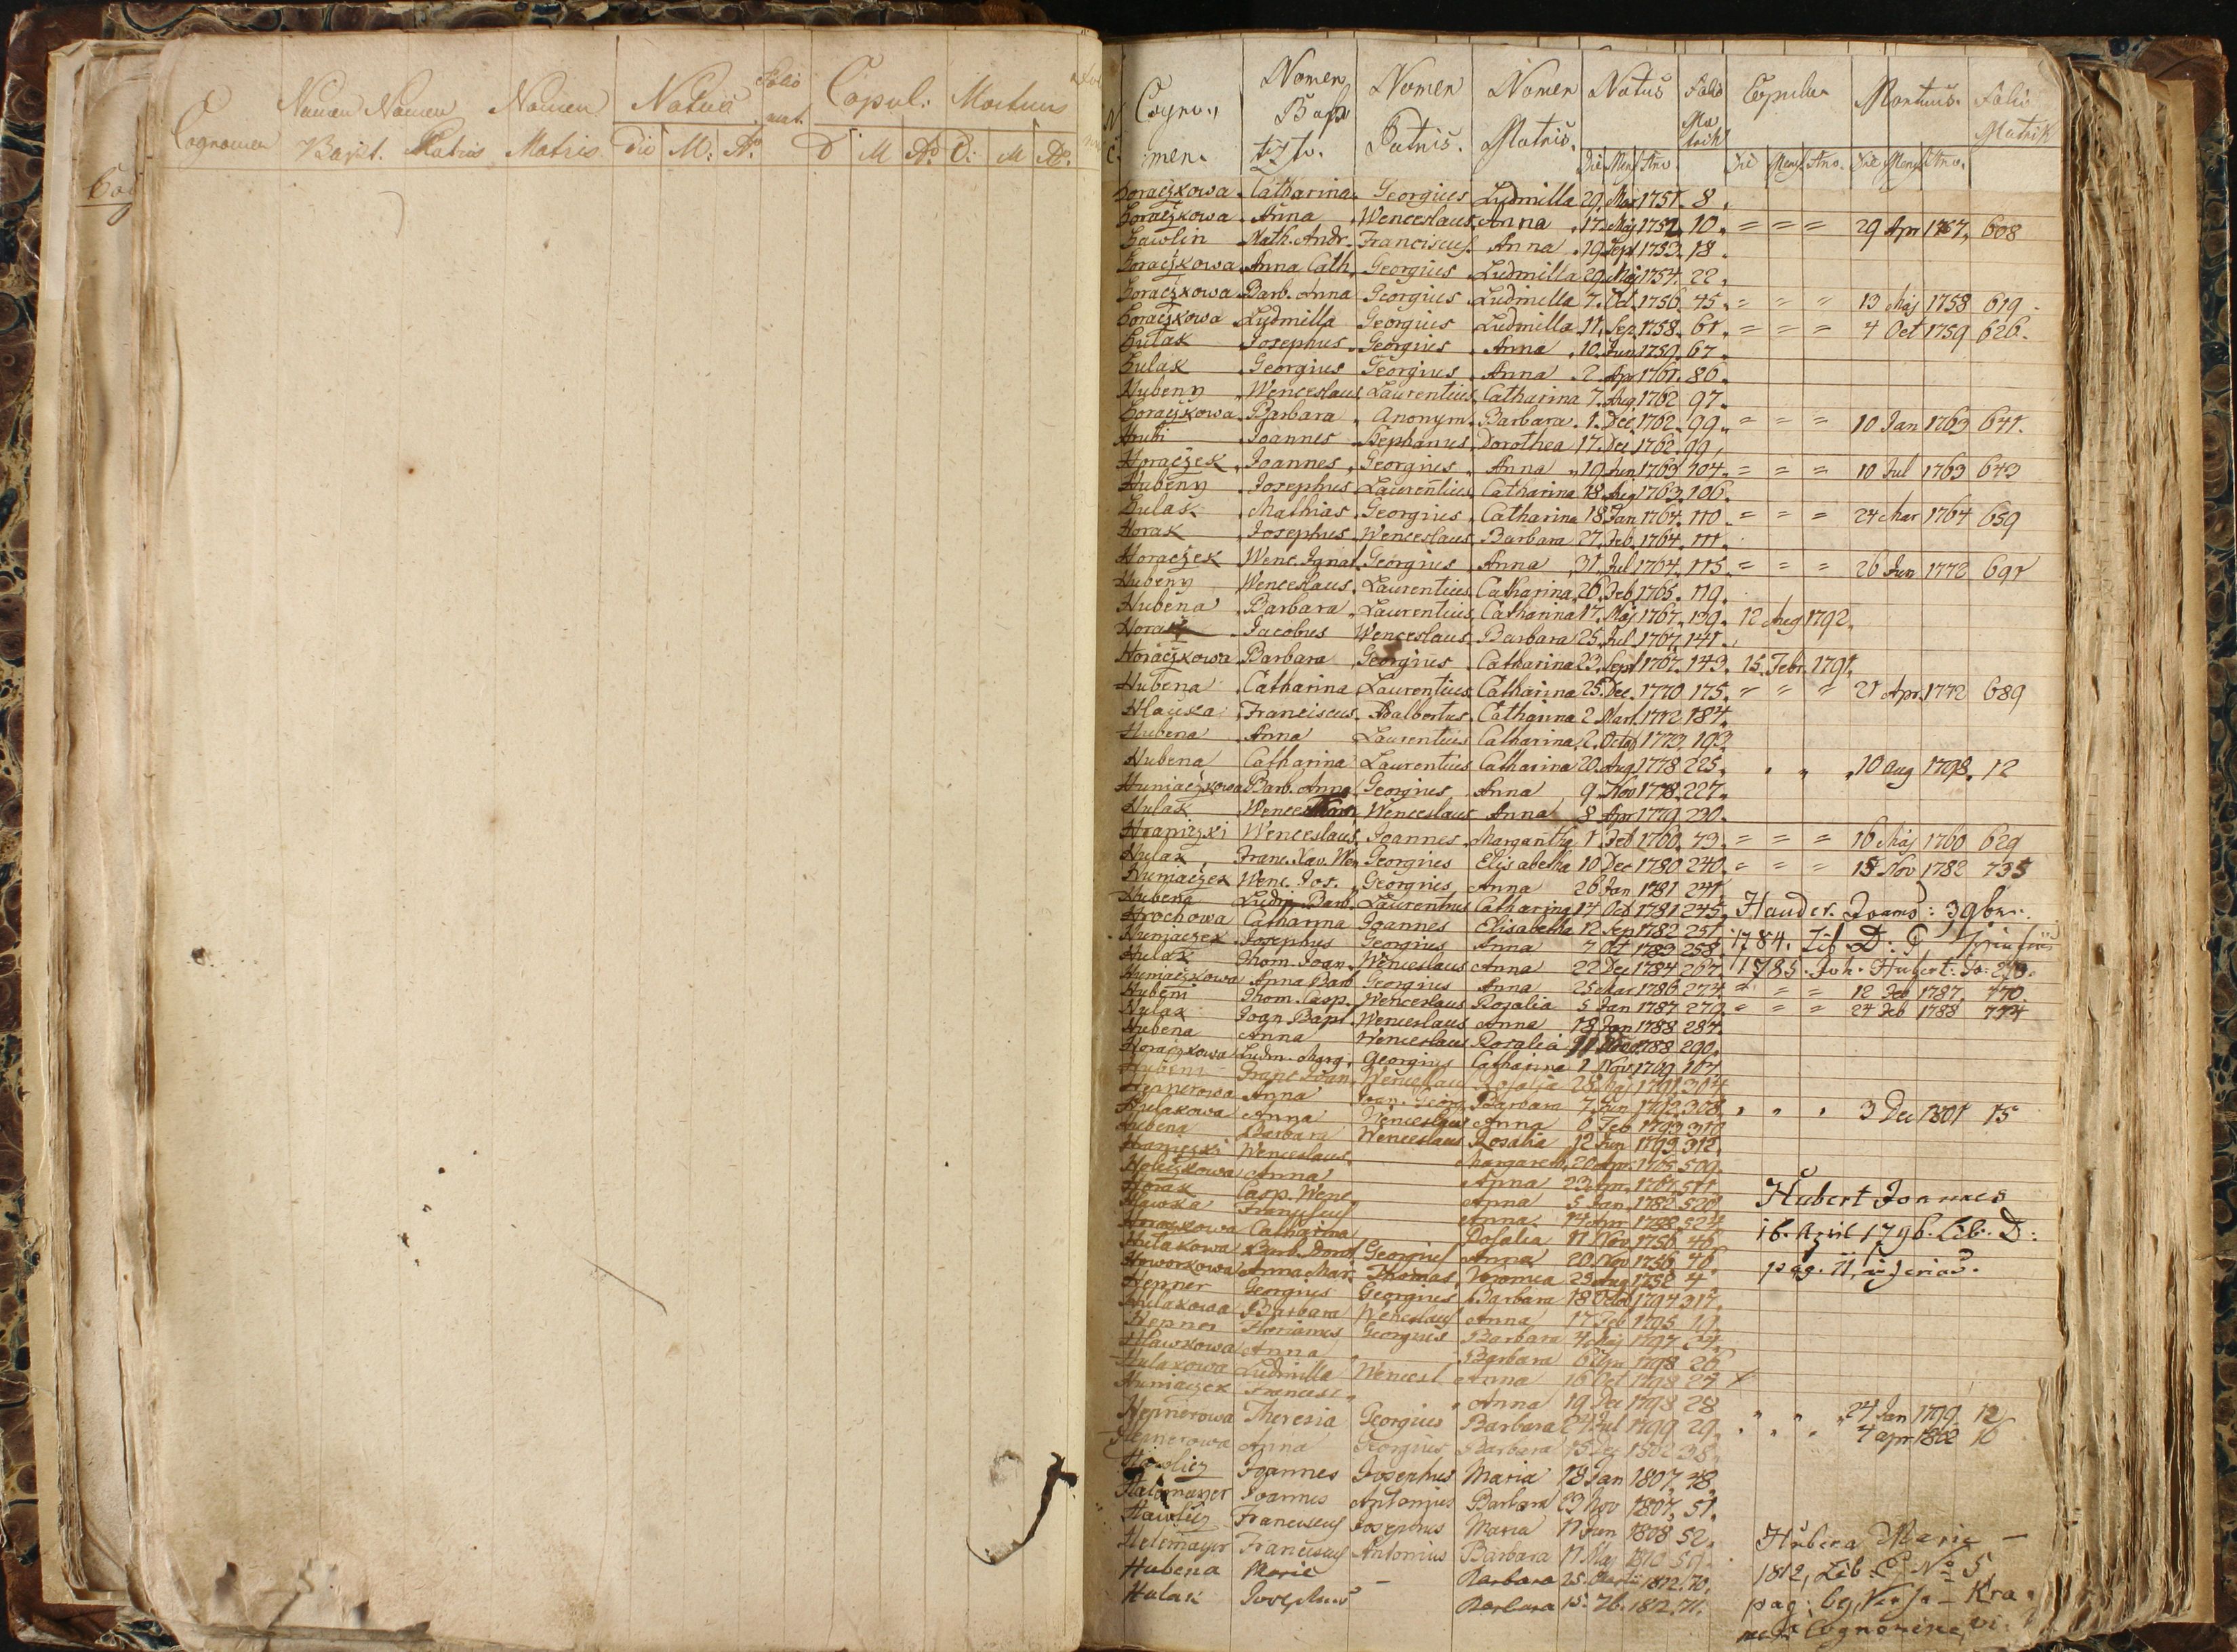 Cognomen Nomen Bapt. Nomen Patris Nomen Matris Natus Folio mat. Copul: Mortuus
Die M: Ao. D M Ao D: M Ao.
Cogno men. Nomen Bap tizto. Nomen Patris. Nomen Matris. Natus Folio Ma trik Copula Mortuus. Folio Matrik
Die Mens Ano. Die Mens Ano. Die Mens Ano.
Horaczkowa Catharina Georgius Ludmilla 29 Mar 1751 8
Horaczkowa Anna Wenceslaus Anna 17 Maj 1752 10 = = = 29 Apr 1767 608
Hawlin Math. Andr. Franciscus Anna 19 Sept 1753 18
Horaczkowa Anna Cath. Georgius Ludmilla 29 Maj 1754 22
Horaczkowa Barb. Anna Georgius Ludmilla 7 Oct 1756 45 = = = 13 Maj 1758 619
Horaczkowa Ludmilla Georgius Ludmilla 11 Sep 1758 61 = = = 4 Oct 1759 626
Hulak Josephus Georgius Anna 10 Jun 1759 67
Hulak Georgius Georgius Anna 2 Apr 1761 86
Hubeny Wenceslaus Laurentius Catharina 7 Aug 1762 97
Horaczkowa Barbara Anonym. Barbara 1 Dec 1762 99 = = = 10 Jan 1763 641
Hrubi Joannes Stephanus Dorothea 17 Dec 1762 99
Horaczek Joannes Georgius Anna 19 Jun 1763 104 = = = 10 Jul 1763 643
Hubeny Josephus Laurentius Catharina 18 Aug 1763 106
Hulak Mathias Georgius Catharina 18 Jan 1764 110 = = = 24 Mar 1764 659
Horak Josephus Wenceslaus Barbara 27 Feb 1764 111
Horaczek Wenc. Ignat. Georgius Anna 31 Jul 1764 115 = = = 26 Jun 1772 691
Hubeny Wenceslaus Laurentius Catharina 26 Feb 1765 119
Hubena Barbara Laurentius Catharina 17 Maj 1767 139 12 Aug 1792
Horak Jacobus Wenceslaus Barbara 25 Jul 1767 141
Horaczkowa Barbara Georgius Catharina 23 Sept 1767 143 15 Febr. 1791
Hubena Catharina Laurentius Catharina 25 Dec. 1770 175 = = = 21 Apr. 1772 689
Hlauka Franciscus Adalbertus Catharina 2 Mart. 1772 184
Hubena Anna Laurentius Catharina 2 Octob 1773 193
Hubena Catharina Laurentius Catharina 20 Aug 1778 225 10 Aug 1798 12
Humiaczkowa Barb. Anna Georgius Anna 9 Nov 1778 227
Hulak Wenceslaus Wenceslaus Anna 8 Apr 1779 230
Hraniczki Wenceslaus Joannes Margaretha 1 Feb 1760 73 = = = 16 Maj 1760 629
Hulak Franc. Xav. Wen Georgius Elisabetha 10 Dec 1780 240 = = = 15 Nov 1782 735
Humiaczek Wenc. Jos. Georgius Anna 26 Jan 1781 241
Hubena Ludm. Barb. Laurentius Catharina 14 Oct 1781 245 Hauder. Joanes: 39br.
Hrochowa Catharina Joannes Elisabetha 12 Sep 1782 251
Humiaczek Josephus Georgius Anna 7 Oct 1783 258 1784. Lib. D:
Hulak Thom. Joan. Wenceslaus Anna 22 Dec 1784 267 1785. Joh. Hubert: Fo: 210.
Humiaczkowa Anna Barb Georgius Anna 25 Mar 1786 274 = = = 12 Feb 1787 770
Hubeni Thom. Casp. Wenceslaus Rosalia 5 Jan 1787 279 = = = 24 Feb 1788 774
Hulak Joan Bapt Wenceslaus Anna 18 Jan 1788 284
Hubena Anna Wenceslaus Rosalia 1788 290
Horaczkowa Ludm. Marg. Georgius Catharina 1 Nov 1769 167
Hubeni Franc Joan. Wenceslaus Rosalia 28 Maj 1791 304
Hepnerowa Anna Joan. Georg Barbara 7 Jun 1792 308 3 Dec 1801 15
Hulakowa Anna Wenceslaus Anna 6 Feb 1793 310
Hubena Barbara Wenceslaus Rosalia 12 Jun 1793 312
Hraniczki Wenceslaus. Margareth. 20 Apr 1765 509
Anna Anna 23 1767 511
Horak Casp. Wenc. Anna 5 Jan 1782 520 Hubert Joannes
Hlawka Franciscus Anna 14 Apr 1788 524
Horaczkowa Catharina Rosalia 11 Nov 1756 46 16. April 1796. Lib. D:
Hulakowa Barb. Doroth Georgius Anna 20 Nov 1756 46
Howorkowa Anna Mar. Thomas Veronica 29 Aug 1752 4 pag. 11,
Hepner Georgius Georgius Barbara 18 Octob 1794 317
Hulakowa Barbara Wenceslaus Anna 17 Feb 1795 19
Hepner Florianus Georgius Barbara 4 Maj 1797 24
Hlawkowa Anna Barbara 6 Apr 1798 26
Hulakowa Ludmilla Wencesl Anna 16 Oct 1798 27
Humiaczek Francisc Anna 19 Dec 1798 28
Hepnerowa Theresia Georgius Barbara 24 Jul 1799 29 24 Jan 1799 12
Hepnerowa Anna Georgius Barbara 15 Dec 1802 38 4 apr 1802 16
Joannes Josephus Maria 18 Jan 1807 48
Joannes Antonius Barbara 23 Nov 1807 51
Hawlicz Franciscus Josephus Maria 11 Jun 1808 52
Helemayer Franciscus Antonius Barbara 11 Maj 1810 59 Hubena Maria —
Hubena Marie — Barbara 25. 1812. 70. 1812, Lib. No 5
Hulak Josephus Barbara 15. 1812. 71. pag: Kra
Cognomine